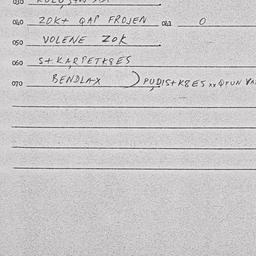 040 ZOK+ QAP FROJEN 041 0
050 VOLENE ZOK
060 S+KARPETK8ES
070 BENDLAX ) PUDIS+K8ES